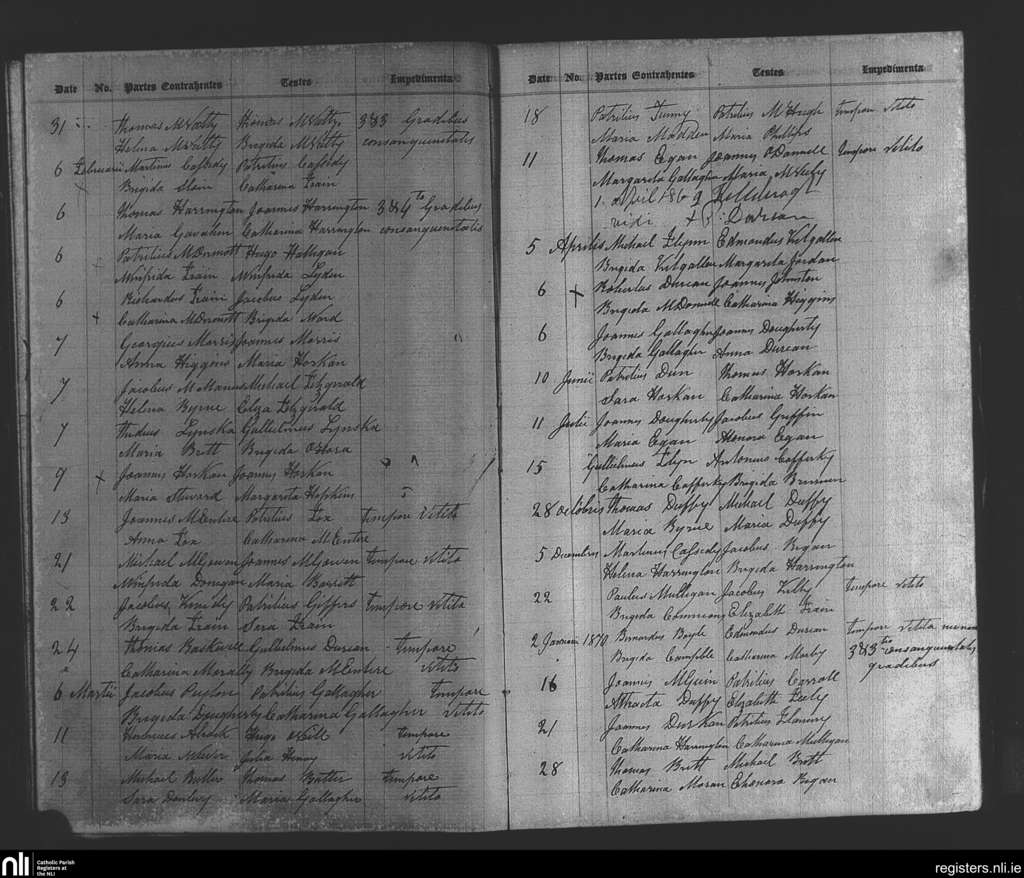 Date No. Partes Contrahentes Testes Impedimenta
31 Thomas McNatty Thomas McNatty 3&3 Gradibus
Helena McNatty Brigida McNatty consanguinitatis
6 Februarii Martinus Cassedy Patritius Cassedy
Brigida Catharina Frain
6 Thomas Harrington Joannes Harrington 3&4to Gradibus
Maria Gavahen Catharina Harrington consanguinitatis
6 Patritius McDermott Hugo Halligan
Winifrida Frain Winifrida Lyden
6 Richardus Frain Jacobus Lyden
+ Catharina McDermott Brigida Ward
7 Georgius Morris Joannes Morris
Anna Higgins Maria Horkan
7 Jacobus McManus Michael Fitzgerald
Helena Byrne Eliza Fitzgerald
7 Lynska Gullielmus Lynska
Maria Brett Brigida OHara
9 + Joannes Horkan Joannes Horkan
Maria Steward Margarita Hopkins
13 Joannes McEntire Patritius Fox tempore vetito
Anna Fox Catharina McEntire
21 Michael McGowan Joannes McGowan tempore vetito
Winifrida Donegan Maria Barrett
22 Jacobus Kennedy Patritius Giffers tempore vetito
Brigida Frain Sera Frain
24 Thomas Baskwell Gullielmus Durcan tempore
Catharina Morally Brigida McEntire vetito
6 Martii Jacobus Peyton Patritius Gallagher tempore
Brigida Dougherty Catharina Gallagher vetito
11 Hugo Neill tempore
Maria Julia Henry vetito
13 Michael Butler Thomas Butler tempore
Sara Maria Gallagher vetito
Date No. Partes Contrahentes Testes Impedimenta
18 Patritius Tunny Patritius McHugh tempore vetito
Maria Madden Maria Phillips
11 Thomas Egan Joannes O'Donnell tempore vetito
Margarita Gallagher Maria
1. April 1869
vidi + P: Durcan
5 Aprilis Michael Flynn Edmondus Kilgallen
Brigida Kilgallen Margarita Jordan
6 + Robertus Durcan Joannes Johnston
Brigida McDonnell Catharina Higgins
6 Joannes Gallagher Joannes Dougherty
Brigida Gallagher Anna Durcan
10 Junii Patritius Dun Thomas Horkan
Sara Horkan Catharina Horkan
11 Julii Joannes Dougherty Jacobus Griffin
Maria Egan Honora Egan
15 Gullielmus Flyn Antonius Cafferky
Catharina Cafferky Brigida Brennen
28 Octobris Thomas Duffy Michael Duffy
Maria Byrne Maria Duffy
5 Decembris Martinus Cassedy Jacobus Regan
Helena Harrington Brigida Harrington
22 Paulus Mulligan Jacobus Kilby tempore vetito
Brigida Elizabeth Frain
2 Januarii 1870 Bernardus Boyle Edmondus Durcan tempore vetito
Brigida Campble Catharina 3&3tio consanguinitatis
gradibus
16 Joannes McGuin Patritius Carroll
Attracta Duffy Elizabeth
21 Joannes Durkan Patritius Flannery
Catharina Harrington Catharina Mulligan
28 Thomas Brett Michael Brett
Catharina Moran Ehonora Regan
nli Catholic Parish
Registers at
the NLI
registers.nli.ie